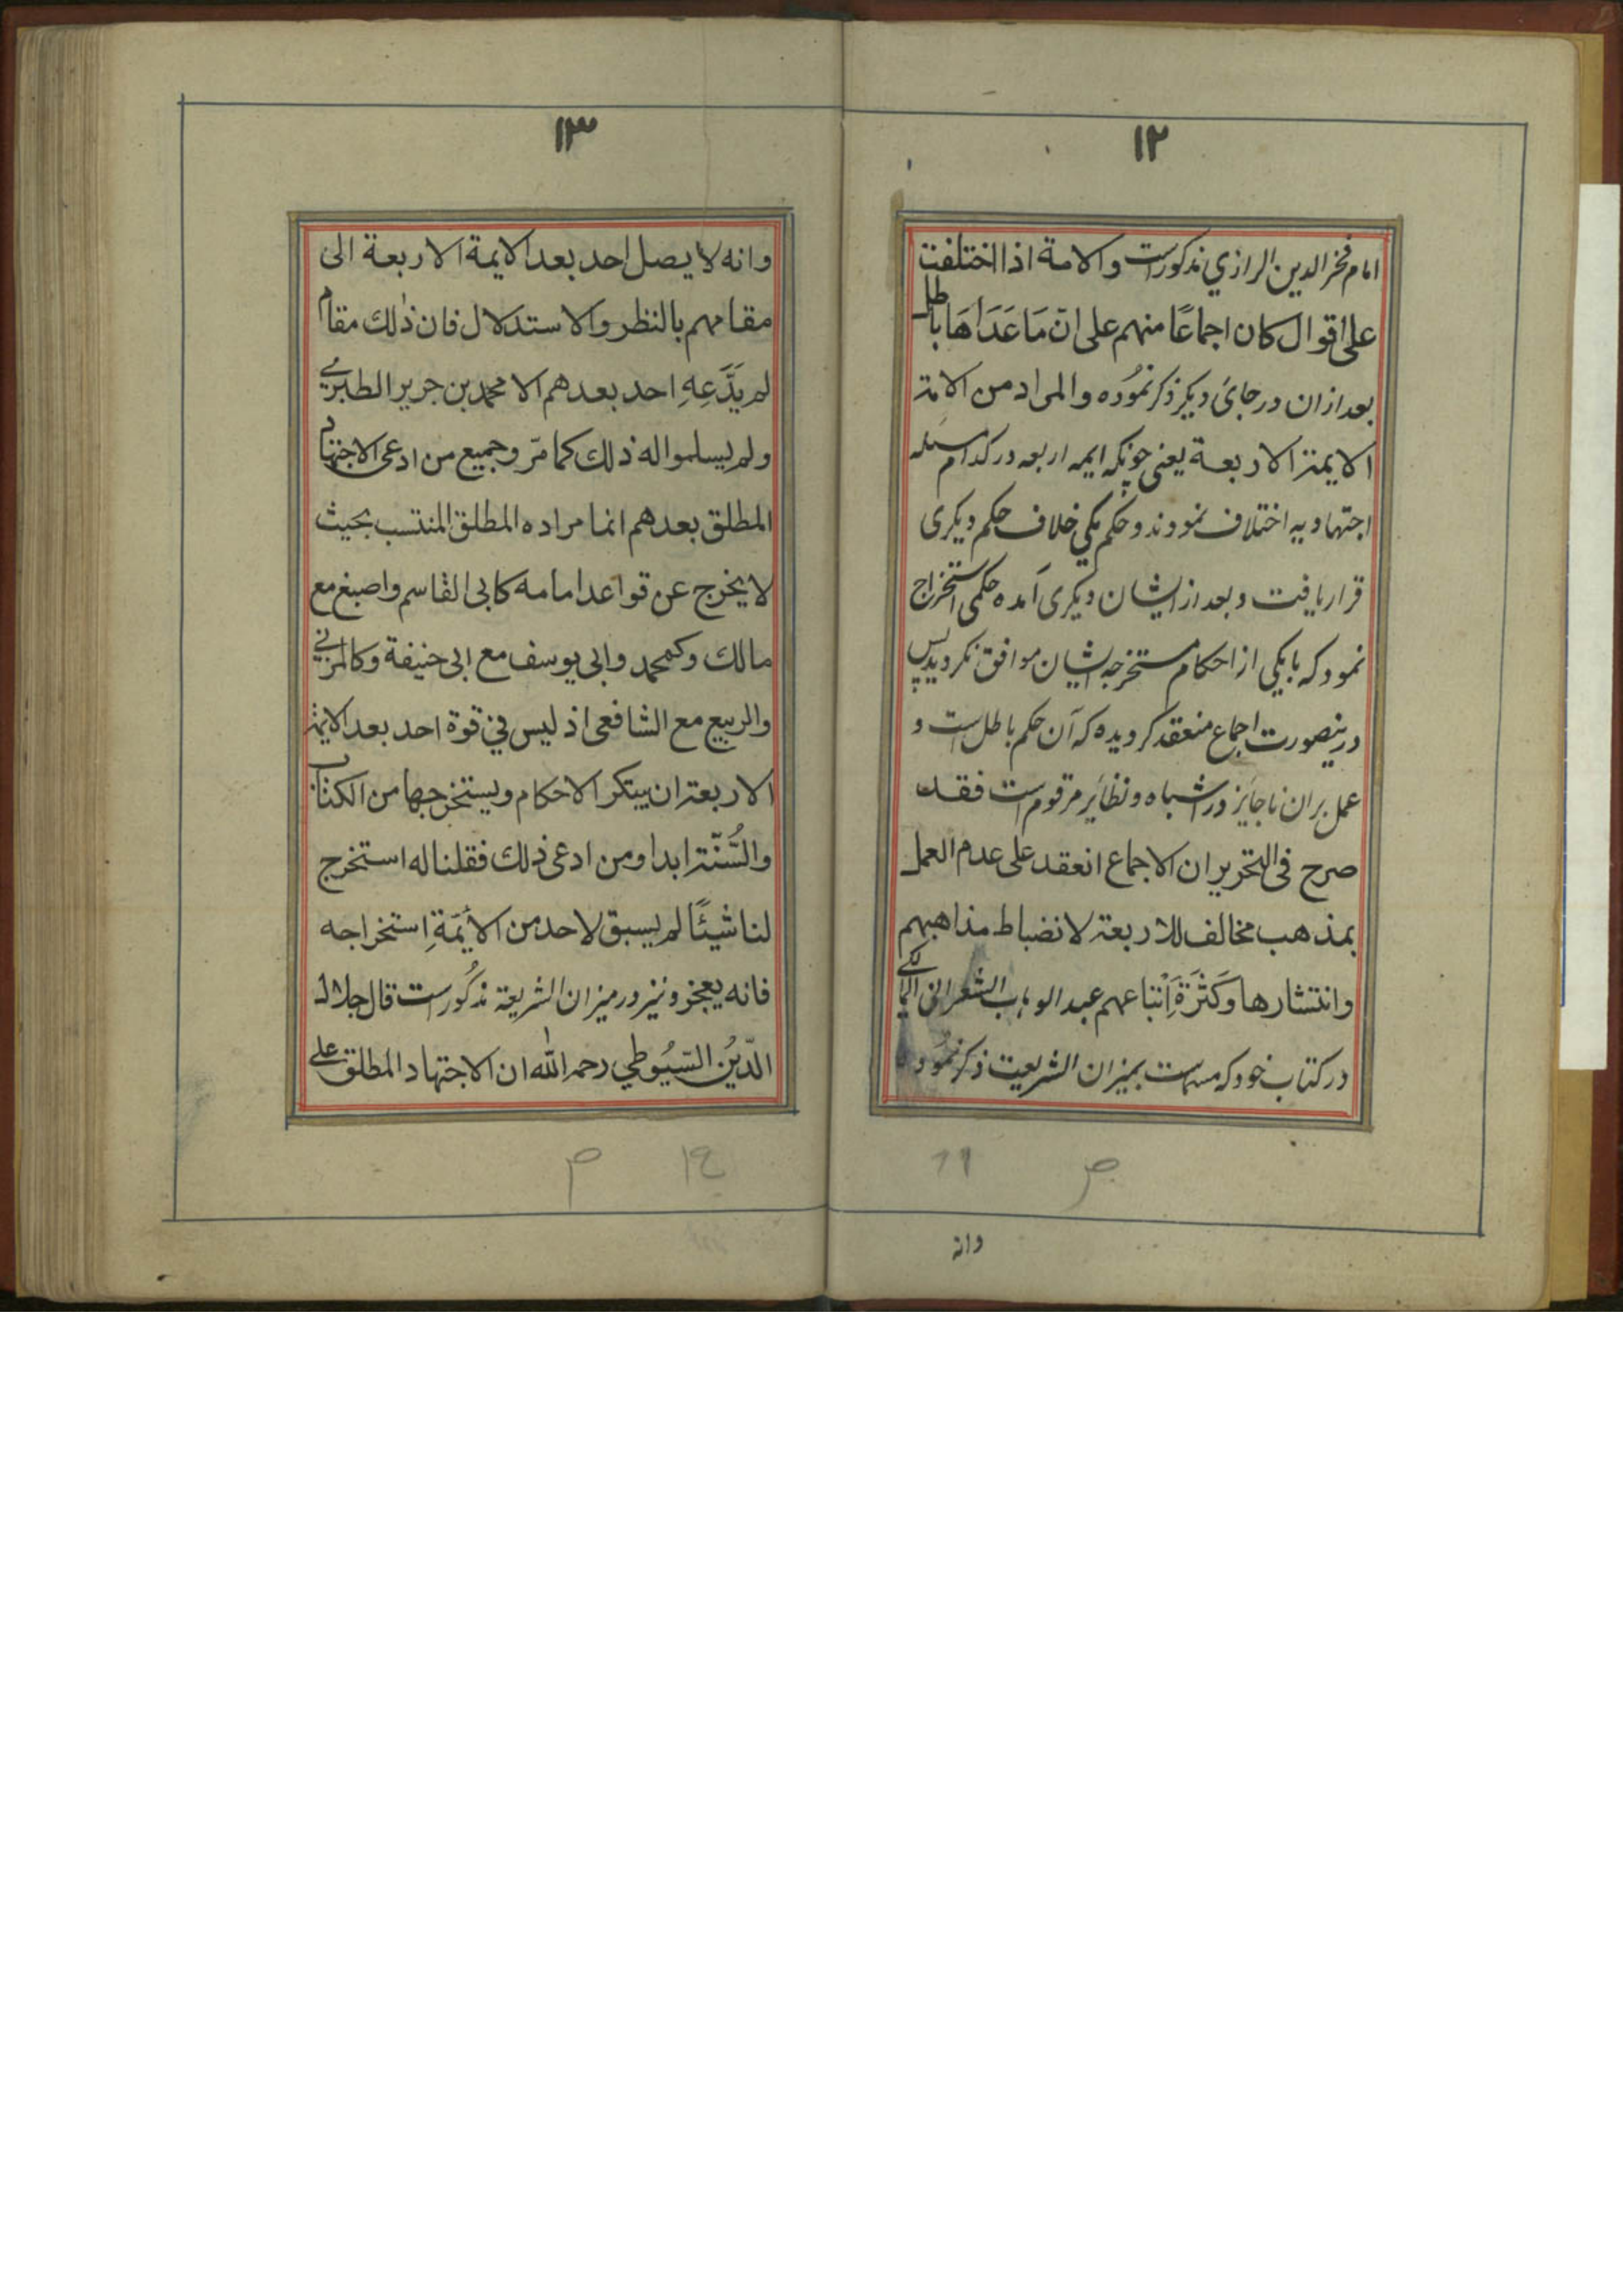 ١٢
امام فخر الدین الرازي مذکورست والامة اذا اختلفت
على اقوال كان اجماعًا منهم على انّ مَا عَدَاهَا باطل
بعد ازان در جائ دیکر ذکر نمُوده والمراد من الامة
الايمة الاربعة يعنى چونکه ایمه اربعه در کدام مسئله
اجتهادیه اختلاف نمودند و حکم یکی خلاف حکم دیکری
قرار یافت و بعد از ایشان دیکری آمده حکمی استخراج
نمود که با یکی از احکام مستخرجه ایشان موافق نکردید پس
درینصورت اجماع منعقد کردیده که آن حکم باطل است و
عمل بران ناجایز در اشباه و نظایر مرقوم است فقد
صرح فى التحرير ان الاجماع انعقد على عدم العمل
بمذهب مخالف للاربعة لانضباط مذاهبهم
وانتشارها وكَثرَةِ اَتباعهم عبد الوهاب الشعرانى المالكي
در کتاب خود که مسماست بمیزان الشریعت ذکر نمُوده
١٢
وانه
١٣
وانه لا يصل احد بعد الايمة الاربعة الى
مقامهم بالنظر والاستدلال فان ذٰلك مقام
لم يَدَّعِهِ احد بعدهم الا محمد بن جرير الطبرَي
ولم يسلموا له ذلك كما مرّ وجميع من ادعى الاجتهاد
المطلق بعدهم انما مراده المطلق المنتسب بحيث
لا يخرج عن قواعد امامه كابى القاسم واصبغ مع
مالك وكمحمد وابى يوسف مع ابى حنيفة وكالمزني
والربيع مع الشافعى اذ ليس في قوة احد بعد الايمة
الاربعة ان يبتكر الاحكام ويستخرجها من الكتاب
والسُّنّة ابدا ومن ادعى ذلك فقلنا له استخرج
لنا شيئًا لم يسبق لاحد من الأئمّةِ استخراجه
فانه يعجز ونیز در میزان الشریعة مذکُورست قال جلال
الدّينُ السّيُوطي رحمه اللّٰه ان الاجتهاد المطلق على